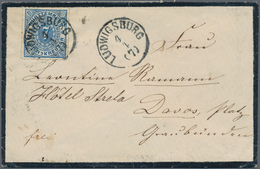 LUDWIGSBURG
LUDWIGSBURG
Frau
Leontine Ramann
Hôtel Strela
Davos, Platz
frei
Graubünden